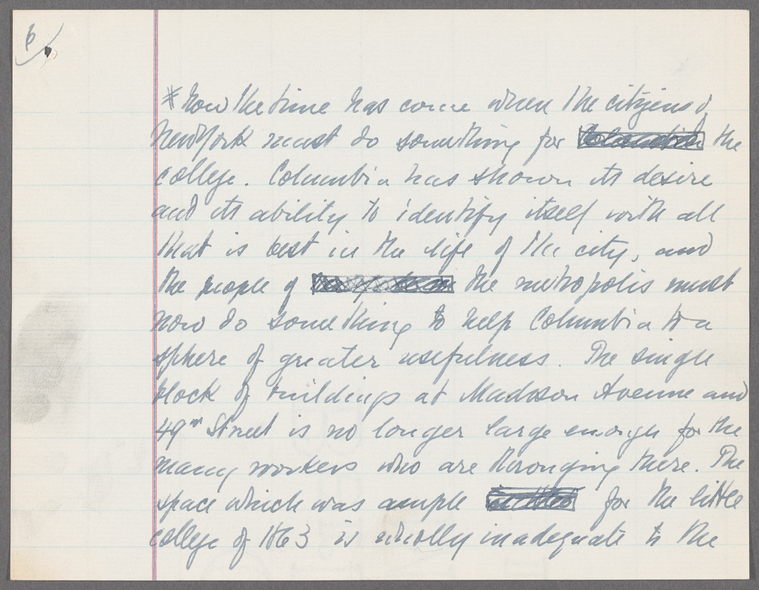 6
* Now the time has come when the citizens of
New York must do something for the
college. Columbia has shown its desire
and its ability to identify itself with all
that is best in the life of the city, and
the people of the metropolis must
now do something to help Columbia to a
sphere of greater usefulness. The single
block of buildings at Madison Avenue and
49th Street is no longer large enough for the
many workers who are thronging there. The
space which was ample for the little
college of 1863 is wholly inadequate to the